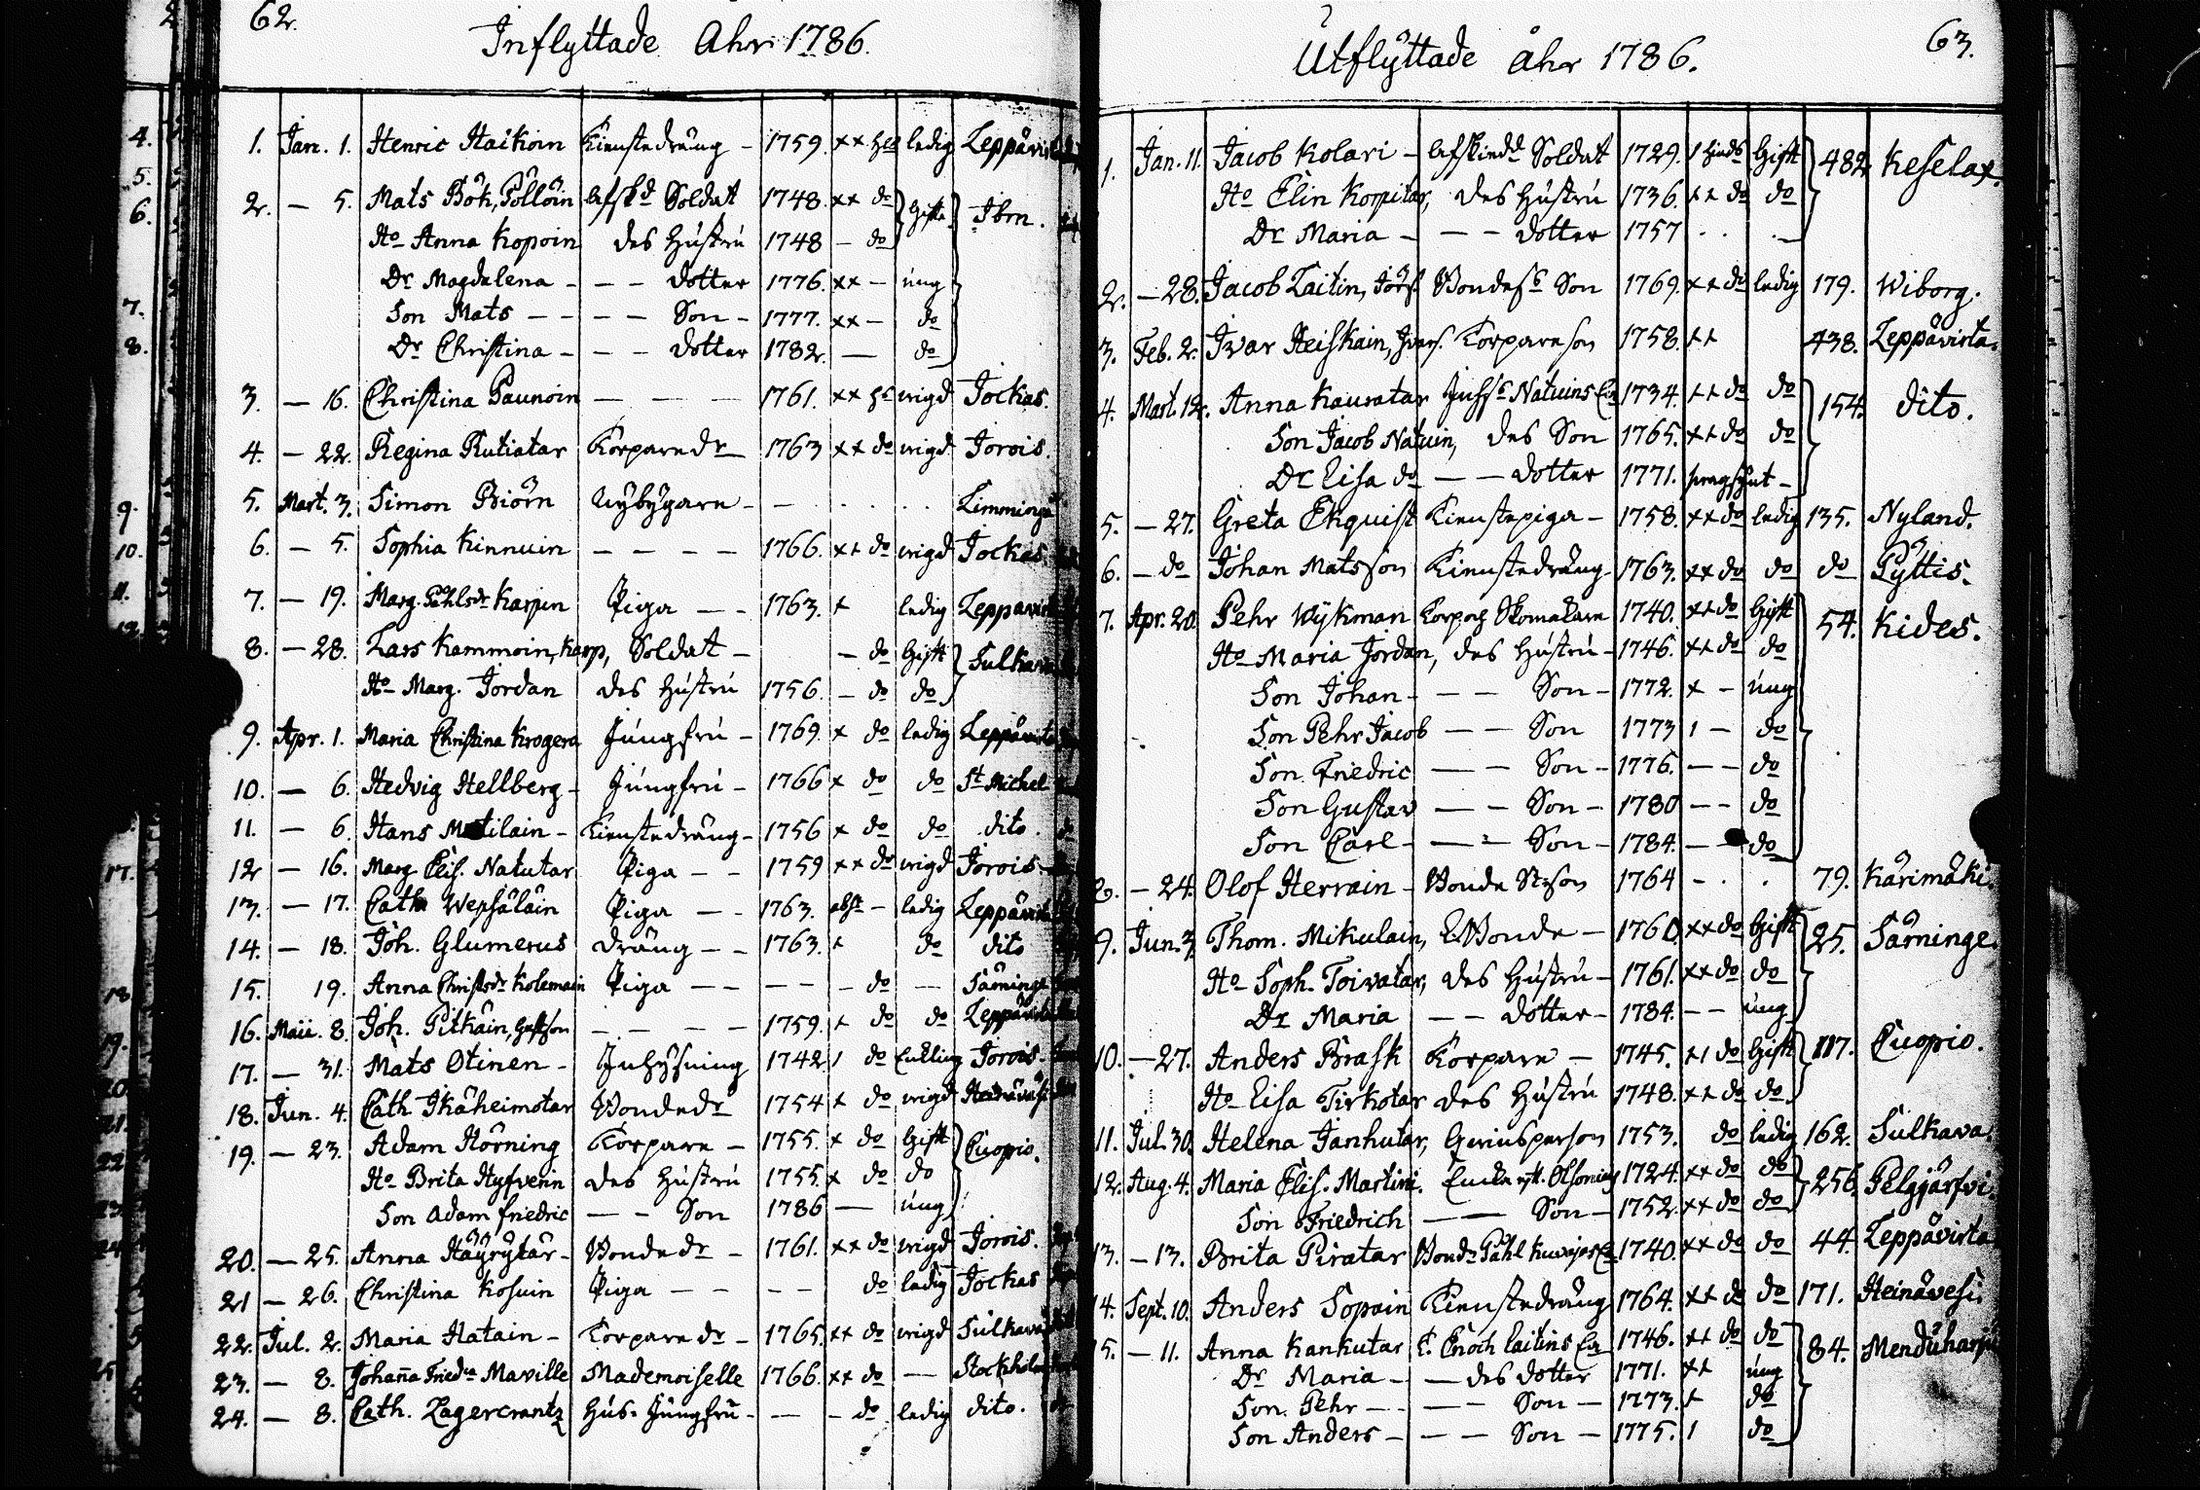 62.
Inflyttade Åhr 1786.
1. Jan. 1. Henric Haikoin Tienstedräng - 1759. ++ ledig Leppävirta
2. - 5. Mats Bök, Pöllöin afskd Soldat 1748. ++ do Gifte Ibm.
Ho Anna Kopoin des Hustru 1748 - do
Dr Magdalena - - - dotter 1776. ++ - ung
Son Mats - - - - Son - 1777. ++ - do
Dr Christina - - - dotter 1782. - do
3. - 16. Christina Paunoin - - - 1761. ++ vigd Jockas.
4. - 22. Regina Rutiatar Torpare dr 1763 ++ do vigd Jorois.
5. Mart. 3. Simon Biörn Nybygare - - . . . . Limminga
6. - 5. Sophia Kinnuin - - - - 1766. ++ do vigd Jockas.
7. - 19. Marg. Påhlsdr Karjun Piga - - 1763. + ledig Leppävirta
8. - 28. Lars Kammoin, Karp, Soldat - - do Gift Sulkava
Ho Marg. Jordan des Hustru 1756. - do do
9. Apr. 1. Maria Christina Krogera Jungfru - 1769. + do ledig Leppävirta
10. - 6. Hedvig Hellberg - Jungfru - 1766 + do do St Michel
11. - 6. Hans Matilain - Tienstedräng - 1756 + do do dito.
12 - 16. Marg. Elis. Natutar Piga - - 1759 ++ do vigd Jorois
13. - 17. Cath Wepsäläin Piga - - 1763. - ledig Leppävirta
14. - 18. Joh. Glumerus dräng - - 1763. + do dito
15. 19. Anna Christsdr Kolemain Piga - - - - - do - Särninge
16. Maii. 8. Joh. Pitkäin, Gustson - - - - 1759. + do do Leppävirta
17. - 31. Mats Otinen - Inhysning 1742 1 do Enkling Jorois.
18. Jun. 4. Cath Ikäheimotar Bonde dr 1754 + do vigd Heinävesi
19. - 23. Adam Hörning Torpare - 1755. + do Gift Cuopio.
Ho Brita Hyfvenin des Hustru 1755. + do do
Son Adam Friedric - - Son 1786 - ung
20. - 25. Anna Häyrytär - Bonde dr - 1761. ++ do vigd Jorois.
21 - 26. Christina Kosuin Piga - - - - do ledig Jockas
22. Jul. 2. Maria Hatain - Torpare dr - 1765. ++ do vigd Sulkava
23. - 8. Johaña Friedca Maville Mademoiselle 1766. ++ do - Stockholm
24. - 8. Cath. Lagercrantz Hus-Jungfru - - - do ledig dito.
63.
Utflyttade åhr 1786.
1. Jan. 11. Jacob Kolari - afskiedd Soldat 1729. 1 Gift 482. Keselax.
Ho Elin Korpitar, des Hustru 1736. ++ do do
Dr Maria - - - dotter 1757 . . -
2. - 28. Jacob Laitin, Jörs. Bondes Son 1769. ++ do ledig 179. Wiborg.
3. Feb. 2. Ivar Heiskain, Ivars. Torpareson 1758. ++ 438. Leppävirta.
4. Mart. 12. Anna Kauratar Natuins Ea 1734. ++ do do 154. dito.
Son Jacob Natuin, des Son 1765. ++ do do
Dr Lisa do - - dotter 1771. -
5. - 27. Greta Ekquist Tienstepiga - 1758. ++ do ledig 135. Nyland.
6. - do Johan Matsson Tienstedräng 1763. ++ do do do Pyttis.
7. Apr. 20. Pehr Wykman Torp och Skomakare 1740. ++ do Gift 54. Kides.
Ho Maria Jordan, des Hustru - 1746. ++ do do
Son Johan - - - Son - 1772. + - ung
Son Pehr Jacob - - Son 1773 1 - do
Son Friedric - - Son - 1776. - - do
Son Gustav - - Son - 1780 - - do
Son Carl - - - Son - 1784. - - do
- 24. Olof Herrain - Bonde St:son 1764 - . . 79. Kärimäki.
9. Jun. 3. Thom. Mikulain, Bonde - 1760. ++ do Gift 25. Särninge.
Ho Soph. Toivatar, des Hustru - 1761. ++ do do
Dr Maria - - dotter - 1784. - - ung
10. - 27. Anders Brask Torpare - 1745. +1 do Gift 117. Cuopio.
Ho Lisa Tirkotar des Hustru 1748. ++ do do
11. Jul. 30. Helena Janhutar, 1753. do ledig 162. Sulkava.
12. Aug. 4. Maria Elis. Martini. 1724. ++ do do 256. Pelgjärfvi.
Son Friedrich - - Son - 1752. ++ do do
13. - 13. Brita Piratar Bond. Påhl Ea 1740. ++ do do 44. Leppävirta
14. Sept. 10. Anders Sopain Tienstedräng 1764. ++ do do 171. Heinävesi.
15. - 11. Anna Kankutar Enoch Laitins Ea 1746. ++ do do 84. Menduharju
Dr Maria - - des dotter 1771. ++ ung
Son Pehr - - - - Son - 1773. + do
Son Anders - - - Son - 1775. 1 do